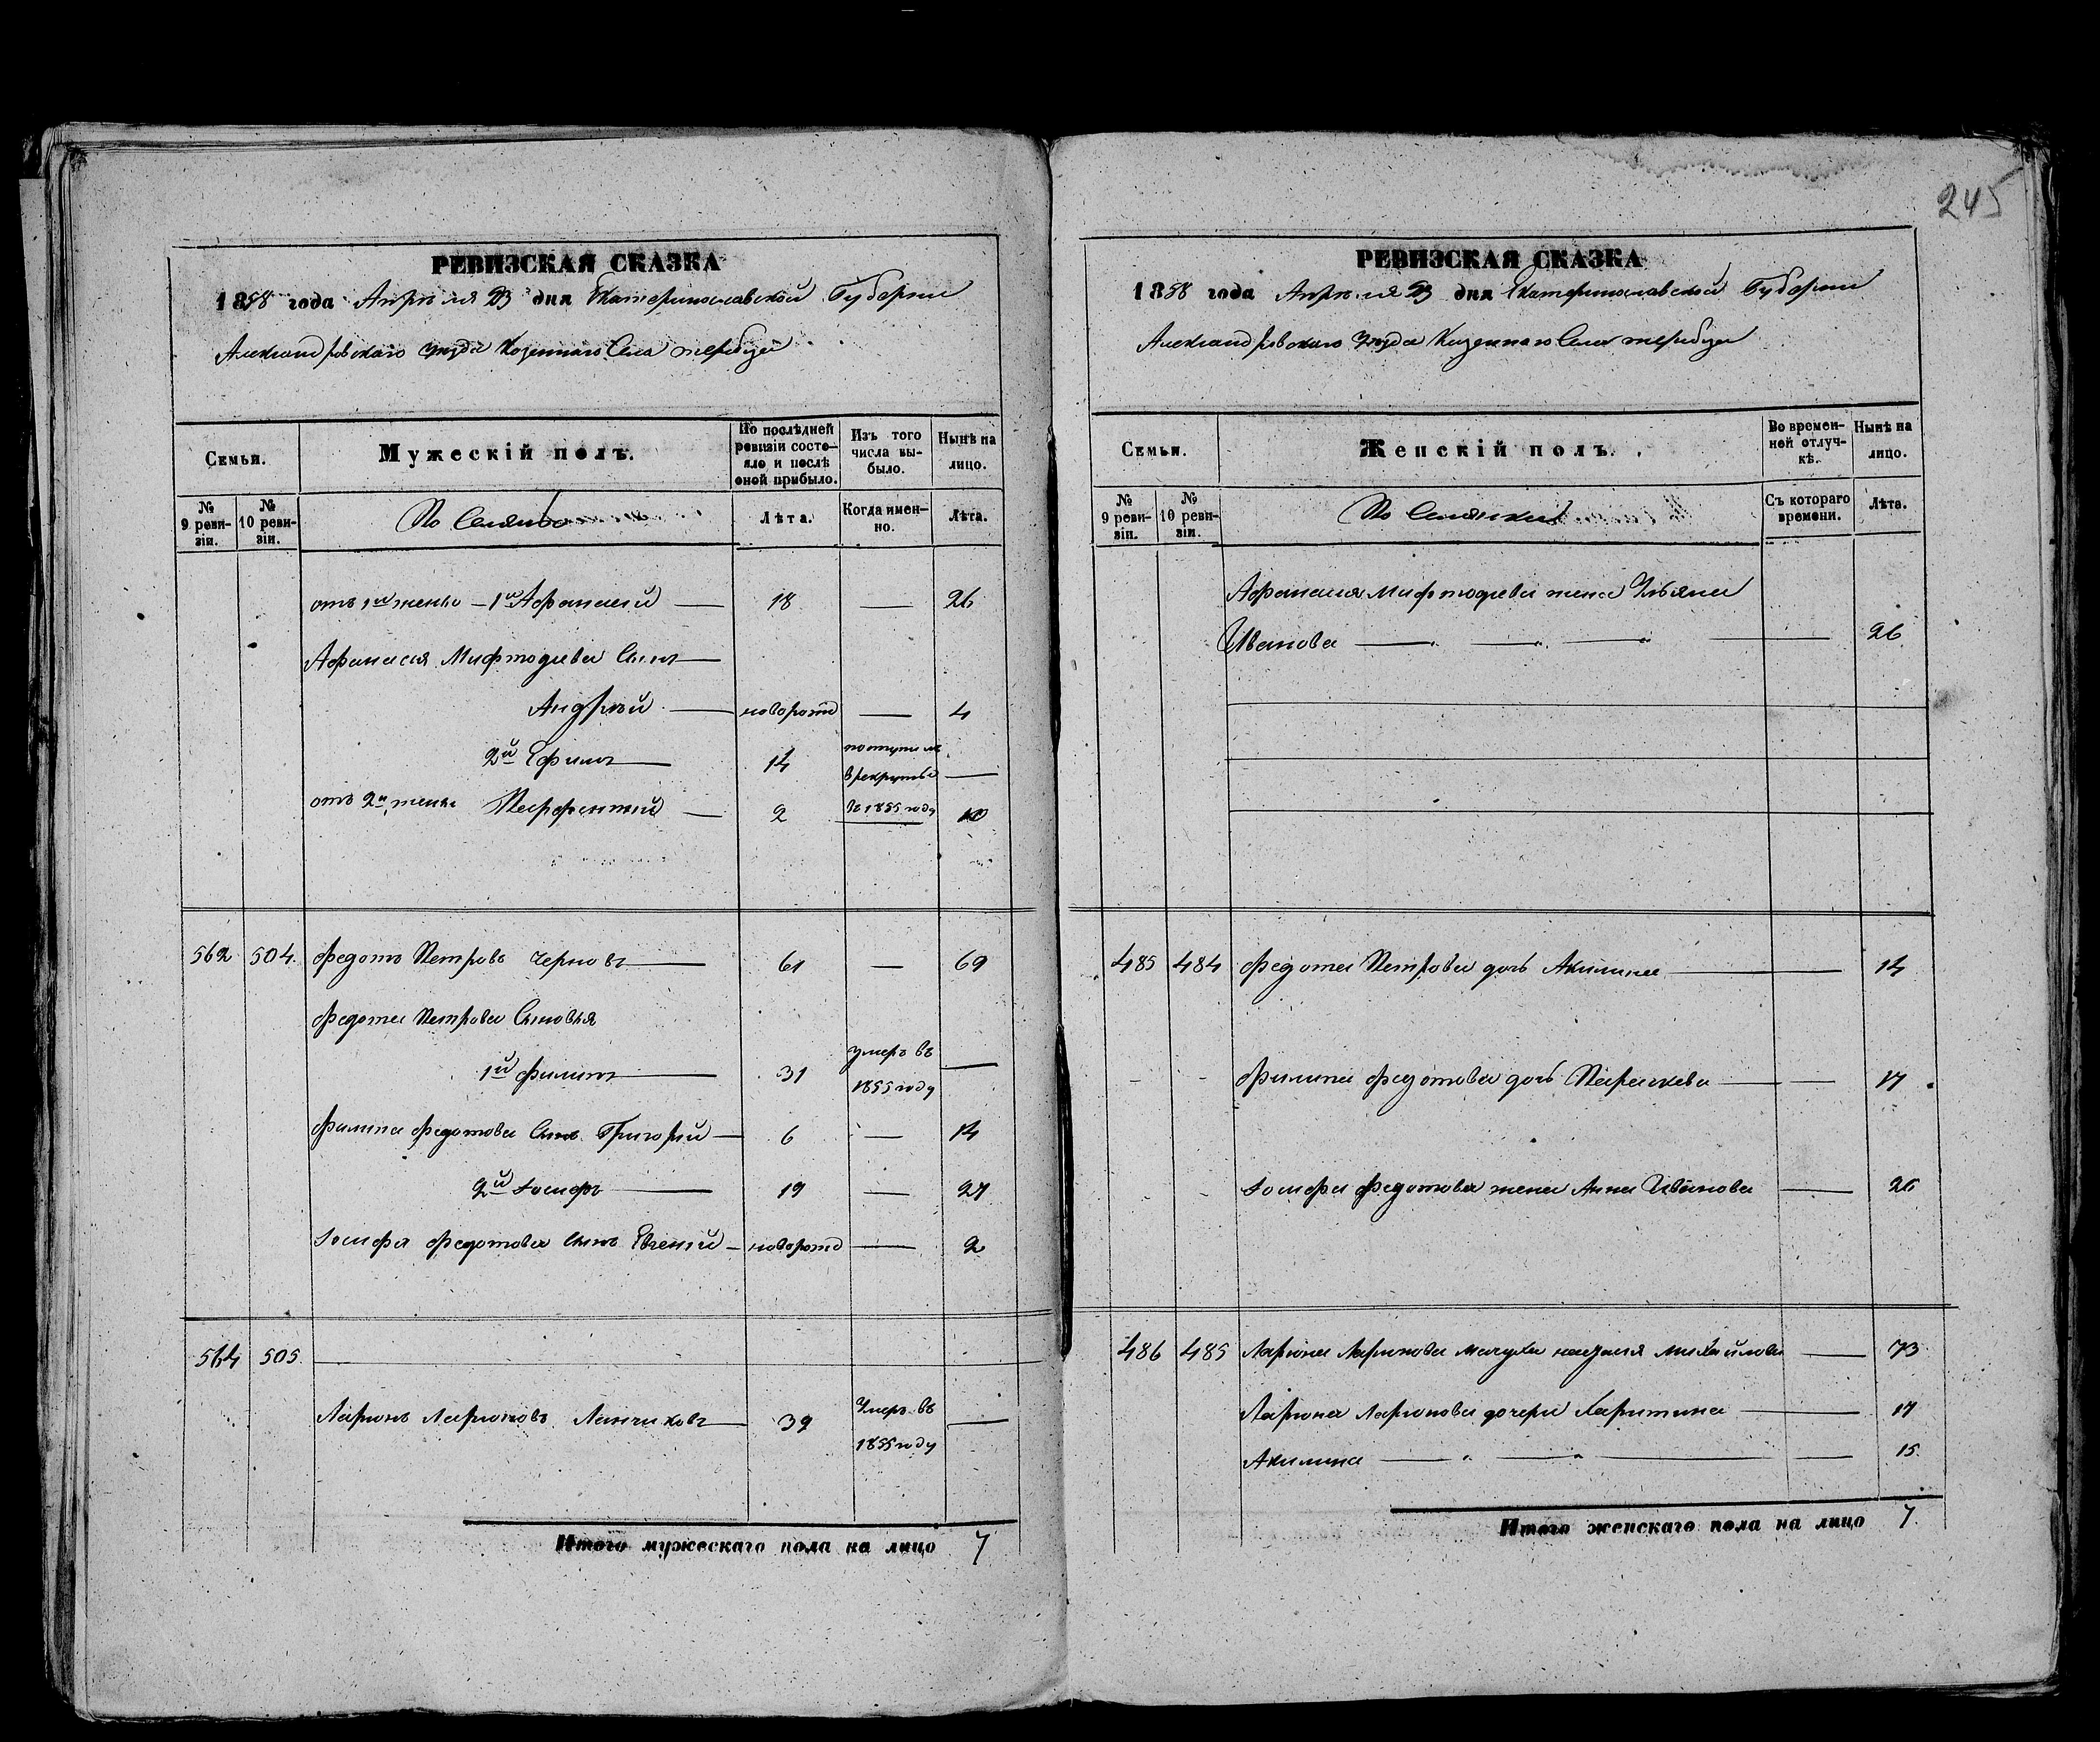 245
РЕВИЗСКАЯ СКАЗКА
1858 года Апрѣля 23 дня Екатеринославской Губерніи
Александровскаго уѣзда Казеннаго Села
Семьи.
Мужескій полъ.
По послѣдней ревизіи состояло и послѣ оной прибыло.
Изъ того числа выбыло.
Нынѣ на лицо.
№ 9 ревизіи.
№ 10 ревизіи.
Лѣта.
Когда именно.
Лѣта.
отъ 1й жены — 1й Афанасий — 18 — 26
Афанасия Мифтодиева Сынъ —
Андрѣй — новорожд — 4
2й Ефимъ — 14 поступилъ в рекруты в 1855 году —
отъ 2й жены Парфентий — 2 — 10
562 504 Федотъ Петровъ Черновъ — 61 — 69
Федота Петрова Сыновья
1й Филипъ — 31 умеръ въ 1855 году —
Филипа Федотова Сынъ Григорий — 6 — 14
2й Іосифъ — 19 — 27
Іосифа Федотова сынъ Евгений — новорожд — 2
564 505
Ларионъ Ларионовъ — 39 Умеръ въ 1855 году —
Итого мужескаго пола на лицо 7
РЕВИЗСКАЯ СКАЗКА
1858 года Апрѣля 23 дня Екатеринославской Губерніи
Александровскаго уѣзда Казеннаго Села
Семьи.
Женскій полъ.
Во временной отлучкѣ.
Нынѣ на лицо.
№ 9 ревизіи.
№ 10 ревизіи.
Съ котораго времени.
Лѣта.
Афанасия Мифтодиева жена Ульяна
Иванова — 26
485 484 Федота Петрова дочь Акилина — 14
Филипа Федотова дочь Параскева — 17
Іосифа Федотова жена Анна Иванова — 26
486 485 Лариона Ларионова мачуха Михайлова — 73
Лариона Ларионова дочери Харитина — 17
Акилина — 15
Итого женскаго пола на лицо 7